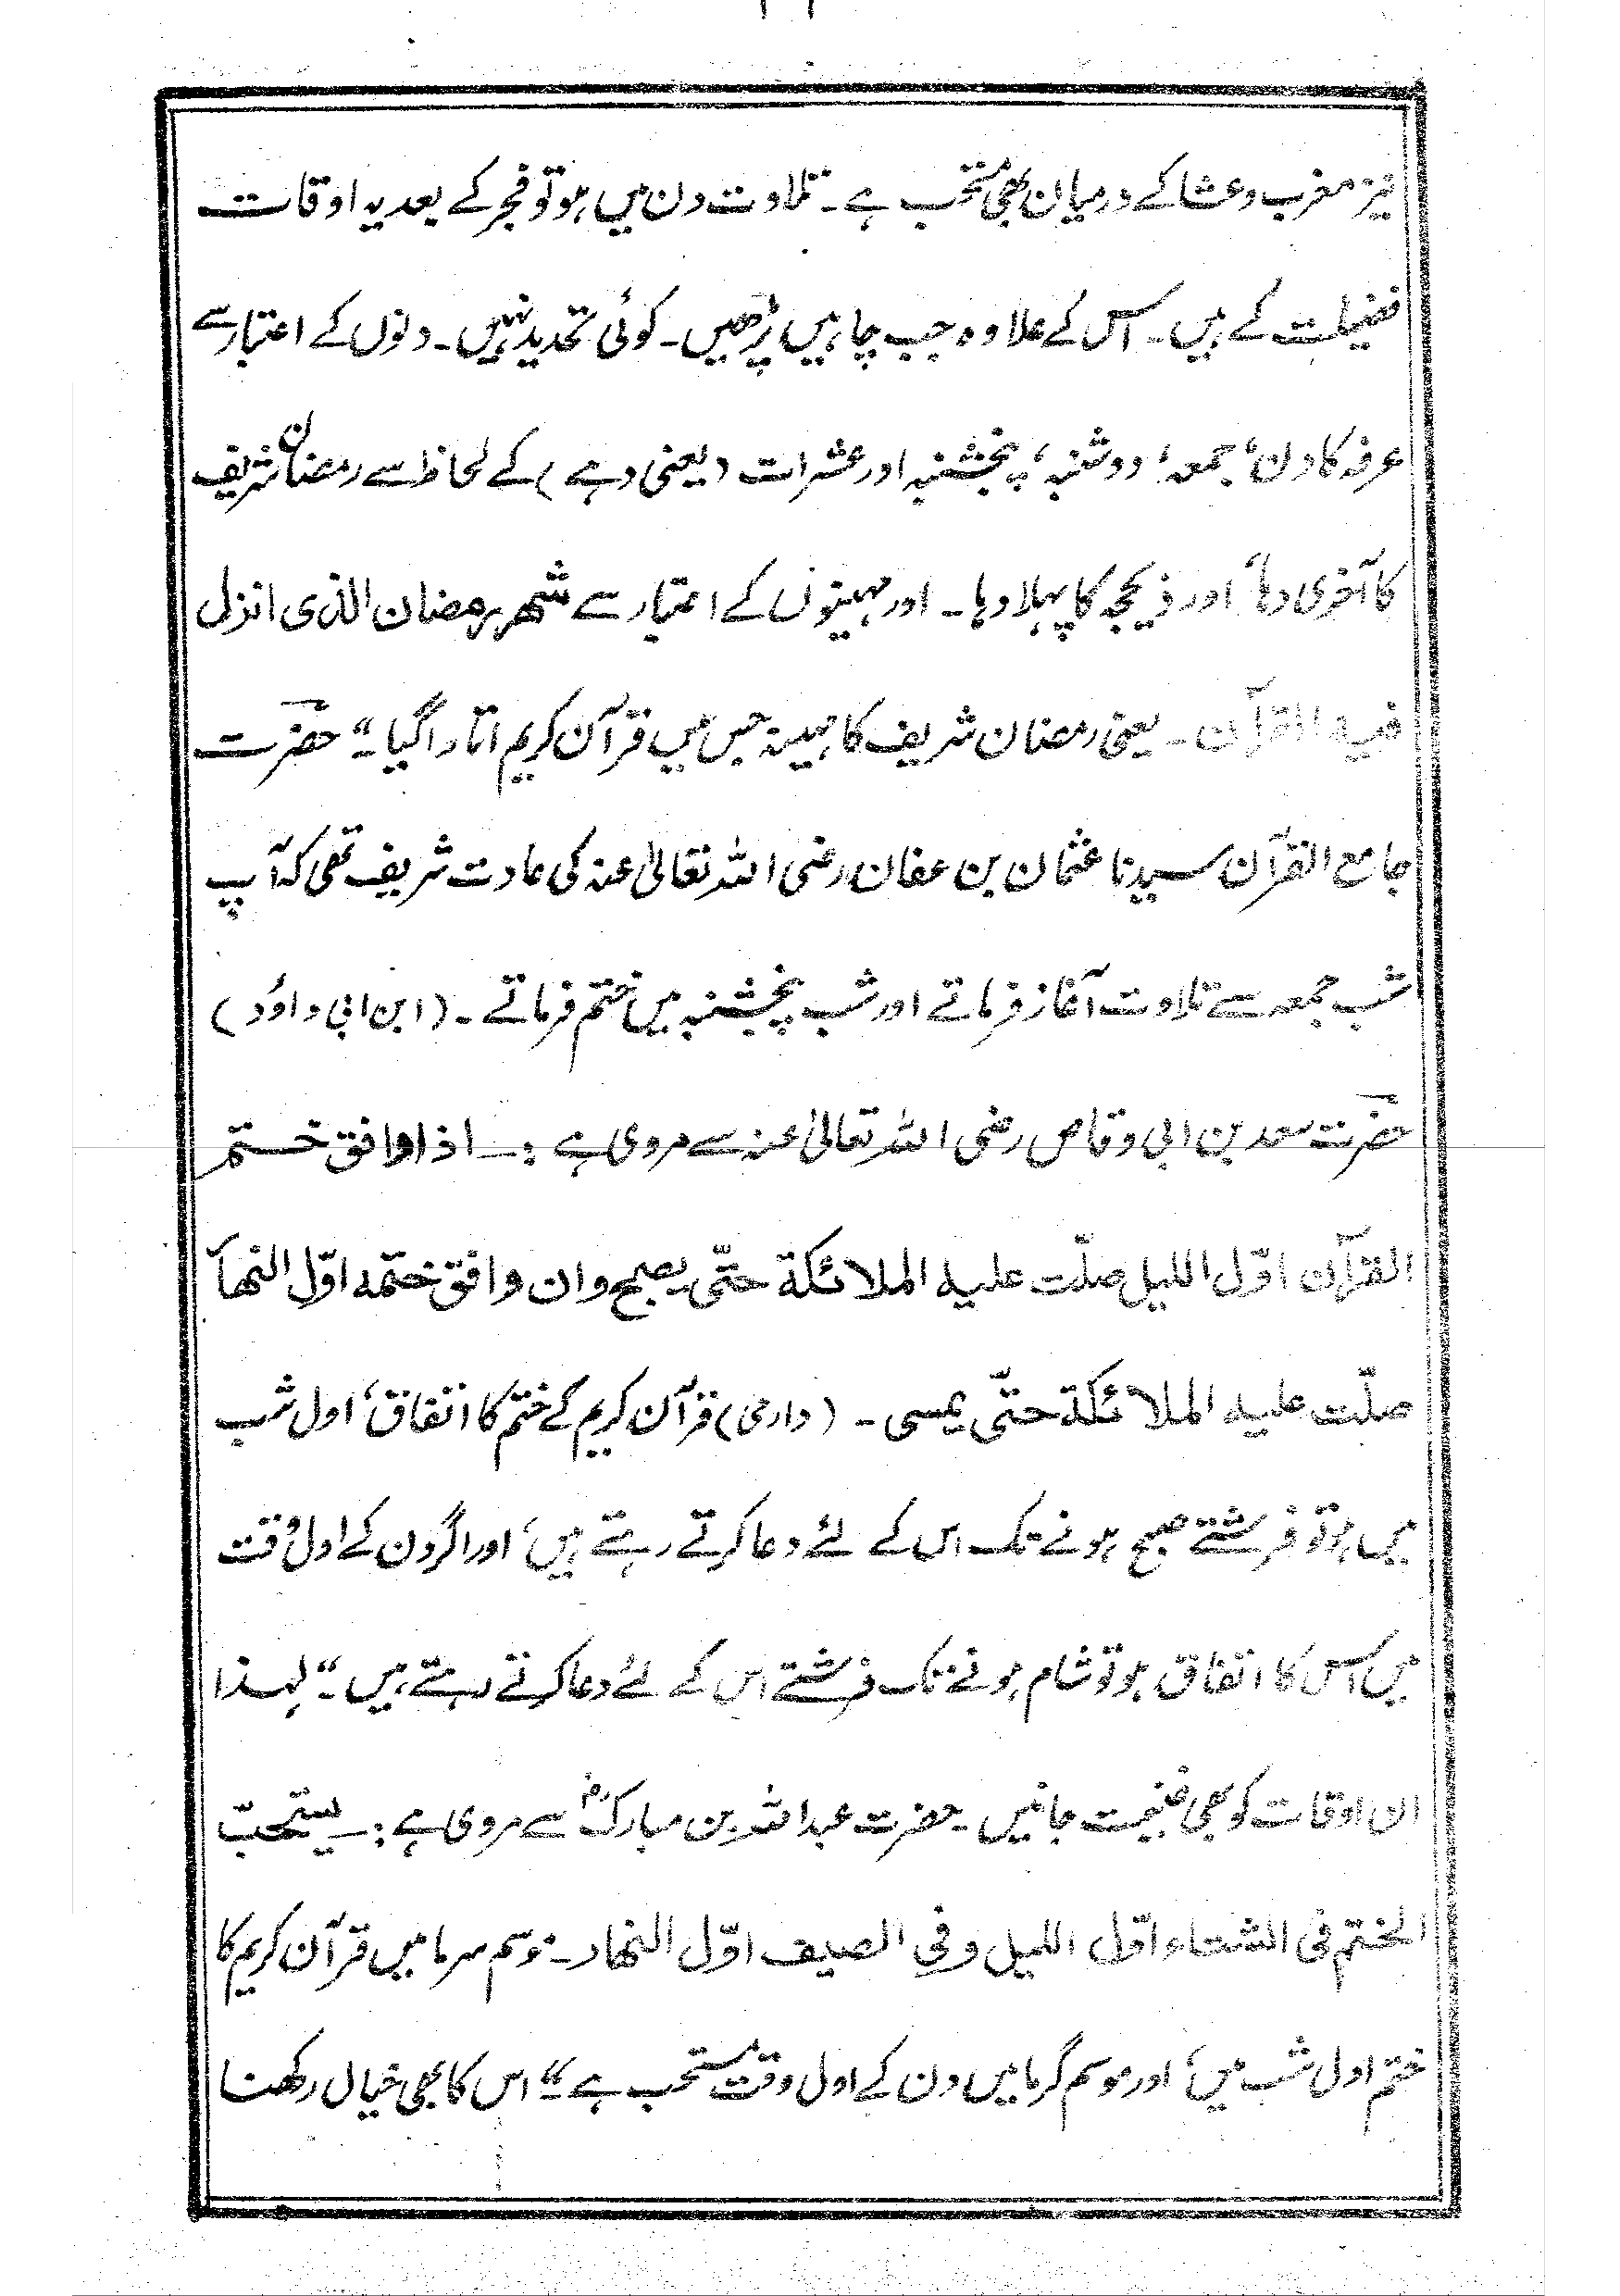 نیز مغرب وعشا کے درمیان بھی مستحب ہے۔ تلاوت دن میں ہو تو فجر کے بعد یہ اوقات
فضیلت کے ہیں۔ اس کے علاوہ جب چاہیں پڑھیں۔ کوئی تحدید نہیں۔ دنوں کے اعتبار سے
عرفہ کا دن، جمعہ، دوشنبہ، پنجشنبہ اور عشرات (یعنی دہے) کے لحاظ سے رمضان شریف
کا آخری دہا، اور ذی حجہ کا پہلا دہا۔ اور مہینوں کے اعتبار سے شهر رمضان الذی انزل
فیه القرآن۔ یعنی رمضان شریف کا مہینہ جس میں قرآن کریم اتارا گیا۔“ حضرت
جامع القرآن سیدنا عثمان بن عفان رضی اللہ تعالیٰ عنہ کی عادت شریف تھی کہ آپ
شب جمعہ سے تلاوت آغاز فرماتے اور شب پنجشنبہ میں ختم فرماتے۔ (ابن ابی داؤد)
حضرت سعد بن ابی وقاص رضی اللہ تعالیٰ عنہ سے مروی ہے :۔ اذا وافق ختم
القرآن اوّل اللیل صلّت علیه الملائکة حتّی یصبح وان وافق ختمه اوّل النهآ
صلّت علیه الملائکة حتّی یمسی۔ (دارمی) قرآن کریم کے ختم کا اتفاق، اول شب
میں ہو تو فرشتے صبح ہونے تک اس کے لئے دعا کرتے رہتے ہیں، اور اگر دن کے اول وقت
میں اس کا اتفاق ہو تو شام ہونے تک فرشتے اس کے لئے دعا کرتے رہتے ہیں۔“ لہٰذا
ان اوقات کو بھی غنیمت جانیں۔ حضرت عبداللہ بن مبارکؓ سے مروی ہے :۔ یستحبّ
الختم فی الشتاء اوّل اللیل وفی الصیف اوّل النهار۔ موسم سرما میں قرآن کریم کا
ختم اول شب میں، اور موسم گرما میں دن کے اول وقت مستحب ہے“ اس کا بھی خیال رکھنا